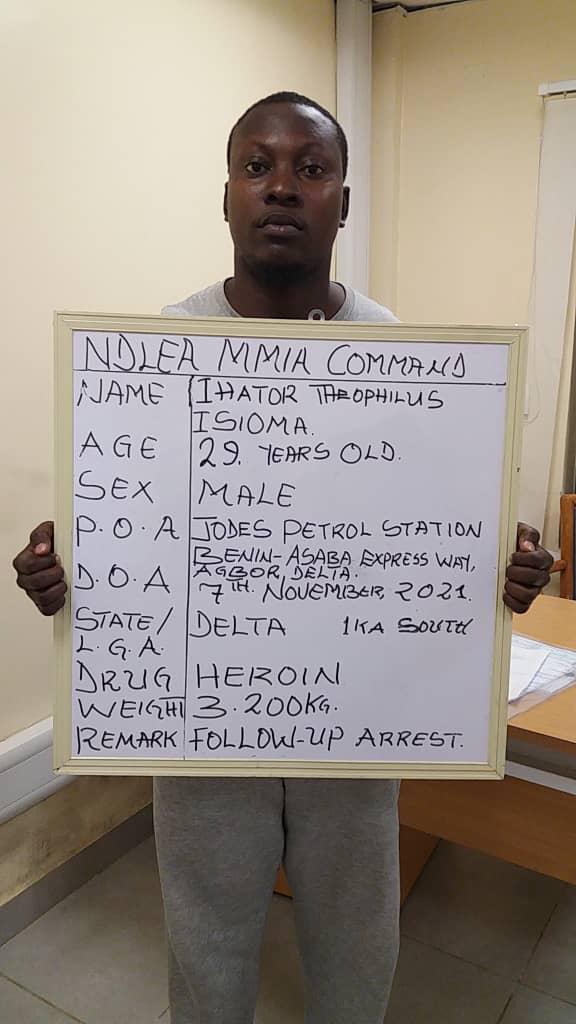 NDLEA MMIA COMMAND
NAME IHATOR THEOPHILUS
ISIOMA.
AGE 29. YEARS OLD.
SEX MALE
P.O.A JODES PETROL STATION
BENIN-ASABA EXPRESS WAY,
AGBOR, DELTA.
D.O.A 7TH. NOVEMBER, 2021.
STATE/ DELTA IKA SOUTH
L.G.A.
DRUG HEROIN
WEIGHT 3.200KG.
REMARK FOLLOW-UP ARREST.